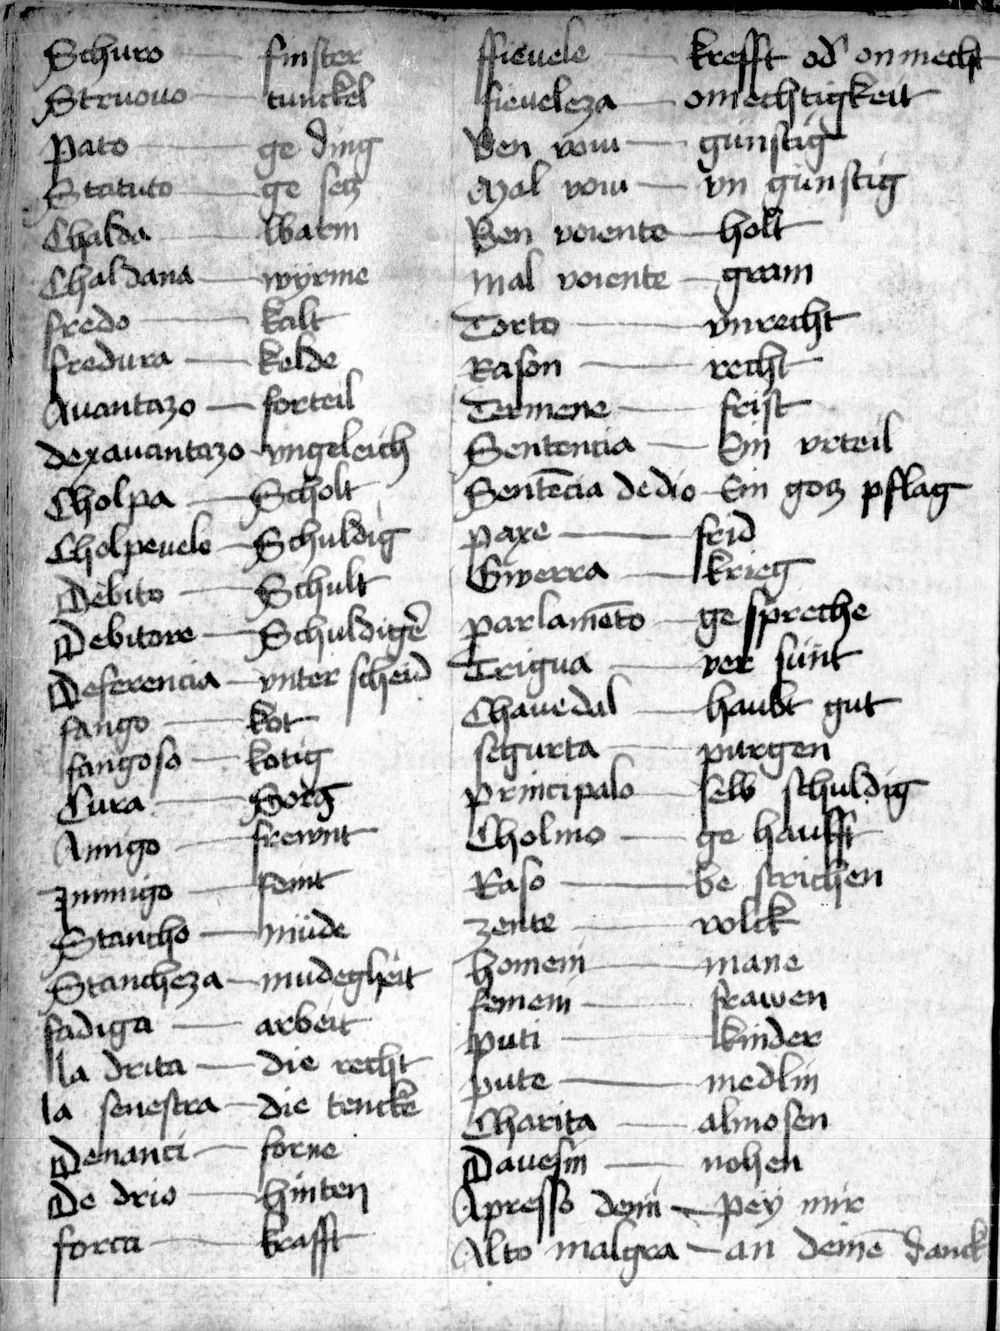 Schuro — finster
Struouo — tunckel
Pato — ge ding
Statuto — ge secz
Chalda — warm
Chaldana — wyrme
fredo — kalt
fredura — kelde
Auantazo — forteil
dexauantazo — vngeleich
Cholpa — Scholt
Cholpeuele — Schuldig
Debito — Schult
Debitore — Schuldiger̄
Deferencia — vnter scheid
fango — kot
fangoso — kotig
Cura — Sorg
Amigo — frewnt
Inimigo — feint
Stancho — müde
Stancheza — mudegheit
fadiga — arbeit
la drita — die recht
la senestra — die tencke
Denanci — forne
De drio — hinten
forca — krafft
ffieuele — krefft od' onmecht
fieueleza — omechtigkeit
Ben voiu — günstig
Mal voiu — vn günstig
Ben voiente — holt
mal voiente — gram
Torto — vnrecht
Rason — recht
Termene — frist
Sentencia — Ein vrteil
Sentēcia de dio — Ein gocz pflag
paxe — frid
Gwerra — krieg
parlamēto — ge spreche
Trigua — ver sünt
Chauedal — haubt gut
segurta — purgen
principalo — selb schuldig
Cholmo — ge haufft
Raso — be strichen
zente — volck
homeni — mane
femeni — frawen
puti — kinder
pute — medlin
Charita — almosen
Dauesin — nohen
Apresso demi — pey mir
Alto malgra — an deinē danck